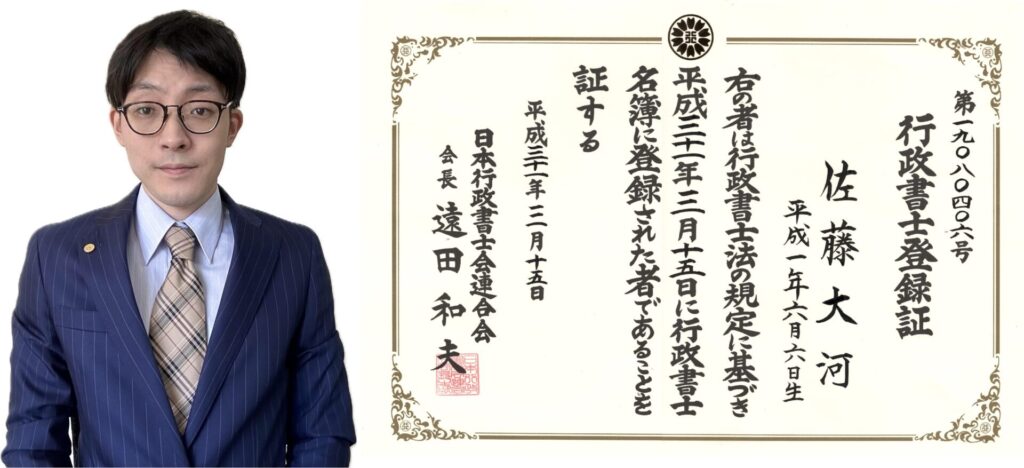 第一九〇八〇四〇六号
行政書士登録証
佐藤大河
平成一年六月六日生
右の者は行政書士法の規定に基づき
平成三十一年二月十五日に行政書士
名簿に登録された者であることを
証する
平成三十一年二月十五日
日本行政書士会連合会
会長 遠田和夫